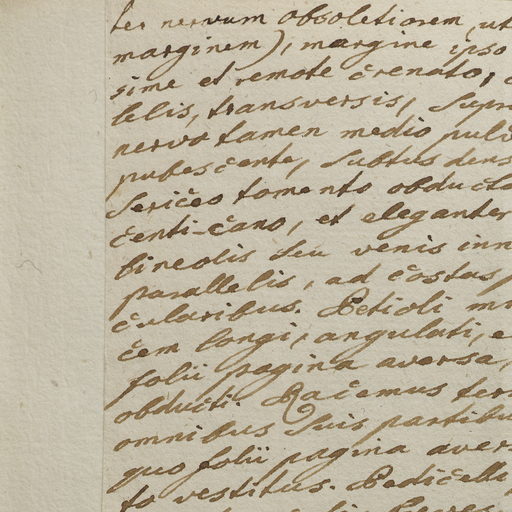 ter nervum obsoletiorem, ut
marginem), margine ipso
sime et remote crenato,
lelis, transversis, supr
nervo tamen medio pulv
pubescente, subtus dens
sericeo tomento obducto
centi-cano, et eleganter
lineolis seu venis inn
parallelis, ad costas p
cularibus. Petioli m
cem longi, angulati, e
folii pagina aversa,
obducti. Racemus ter
omnibus suis partibu
quo folii pagina aver
to vestitus. Pedicelli